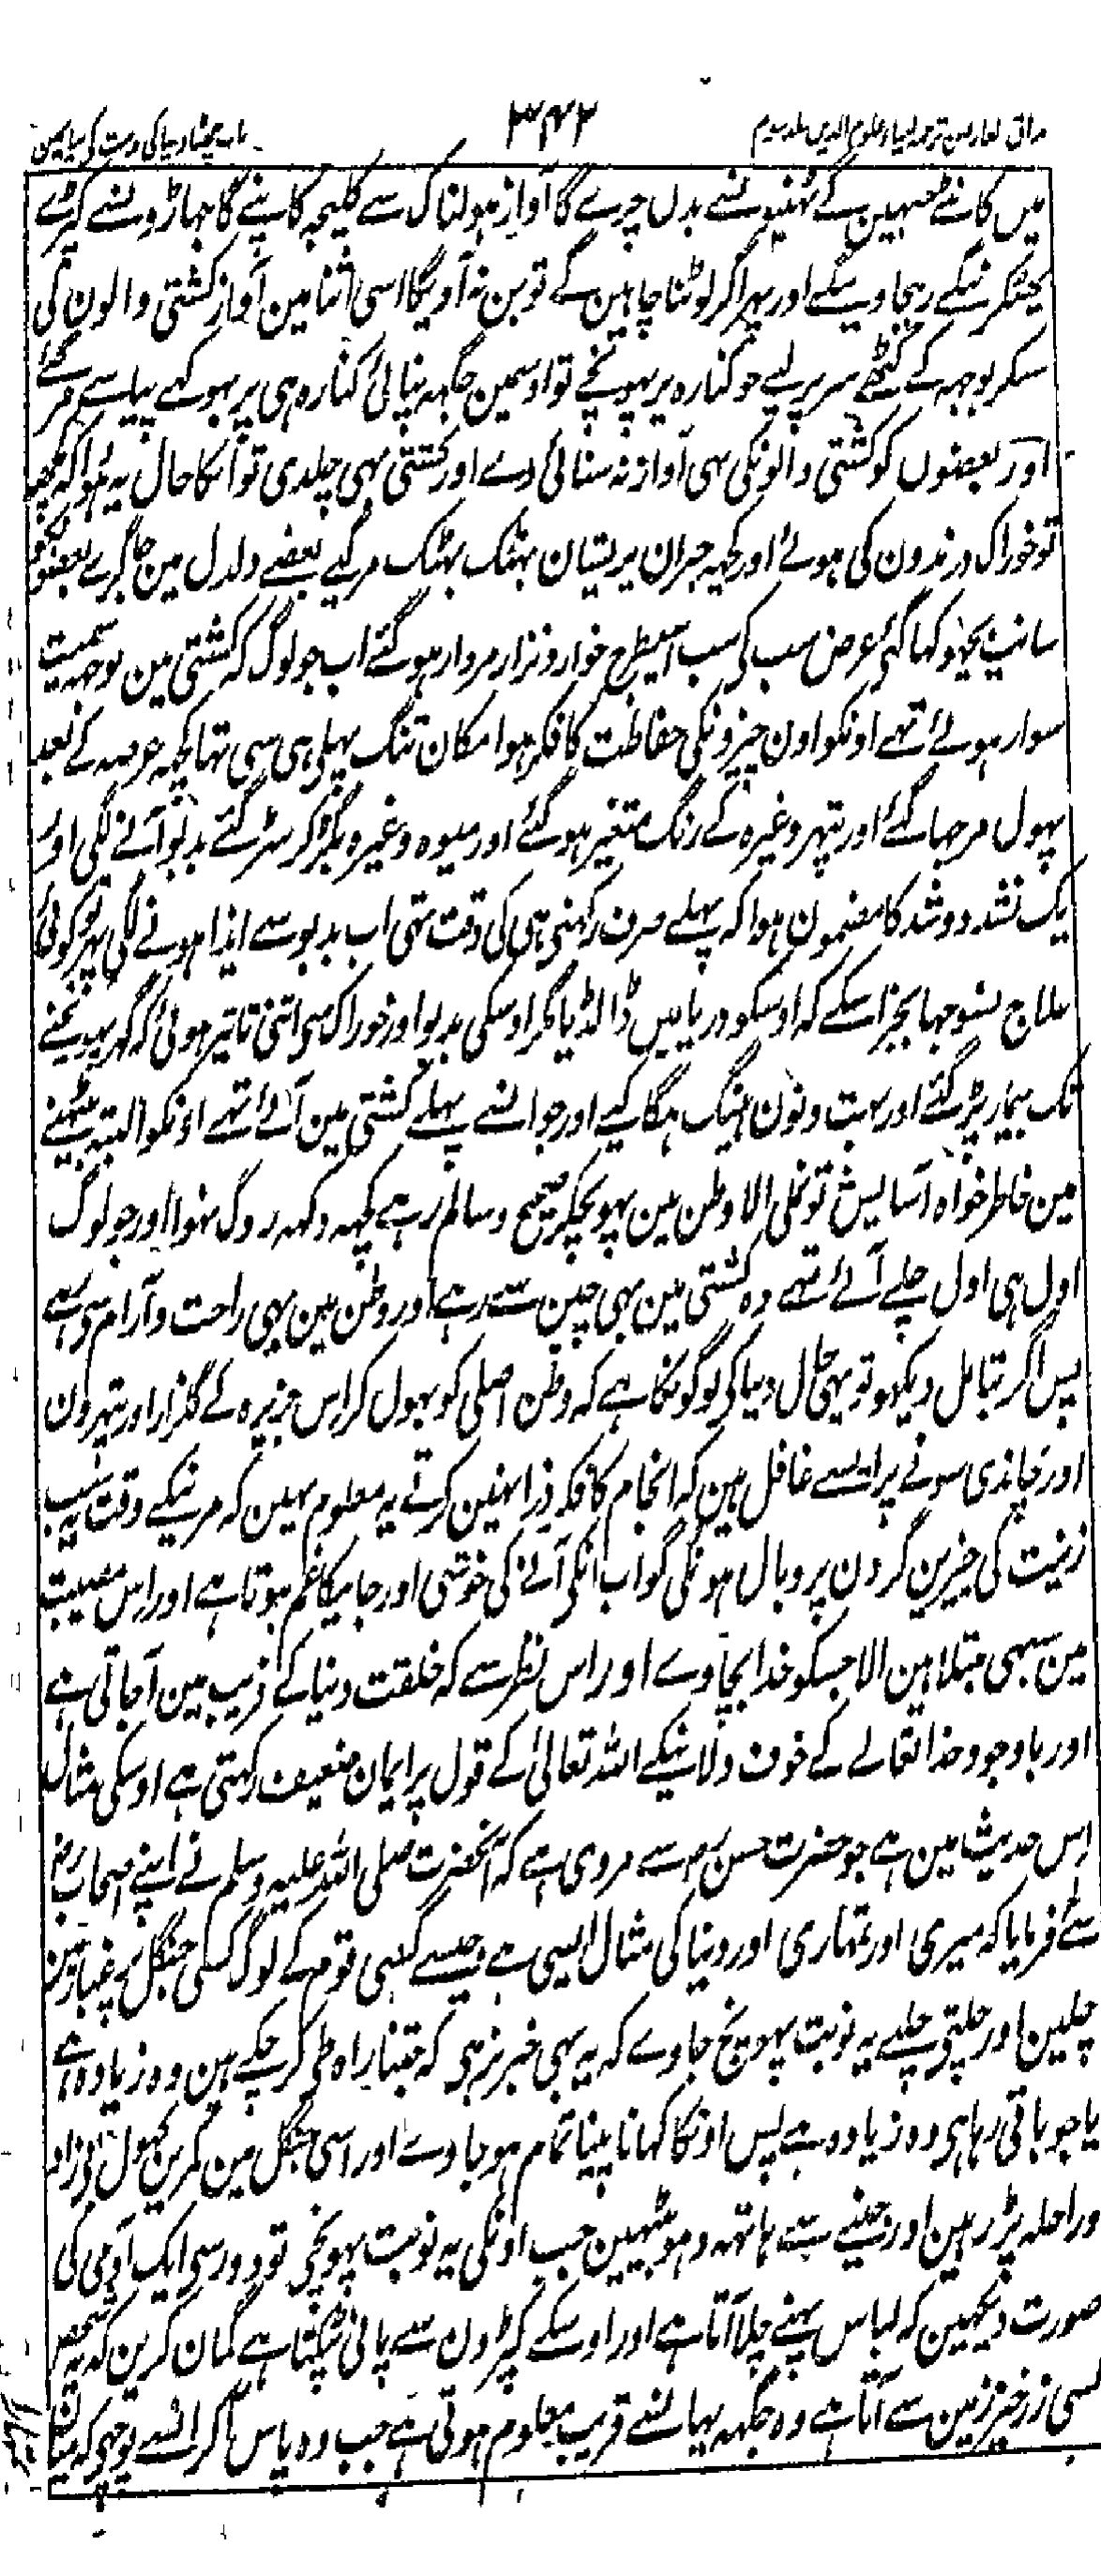 مذاق العارفین ترجمہ احیاء علوم الدین جلد سوم
۳۴۲
باب چھٹا دنیا کی
میں کانٹے چبہین گے ٹہنیونسے بدن چرے گا آواز ہولناک سے کلیجہ کانپے گا جہاڑونسے کپڑے
رہجاوینگے اور پہر اگر لوٹنا چاہین گے تو بن نہ آویگا اسی اثنا مین آواز کشتی والون کی
سنکر بوجہہ کے گٹھے سر پر لیے جو کنارہ پر پہونچے تو اوسمین جگہہ نپائی کنارہ ہی پر بہوکے پیاسے مر گئے
اور بعضوں کو کشتی والونکی بہی آواز نہ سنائی دے اور کشتی بہی چلدی تو انکا حال یہ ہوا کہ کچہہ
تو خوراک درندون کی ہوئے اور کچہہ حیران پریشان بہٹک بہٹک مر گیے بعضے دلدل مین جا گرے بعضونکو
سانپ بچہو کہا گئے غرض سب کی سب اسیطرح خوار و نزار مردار ہو گئے اب جو لوگ کہ کشتی مین بوجہہ سمیت
سوار ہوئے تہے اونکو اون چیزونکی حفاظت کا فکر ہوا مکان تنگ پہلی ہی سی تہا کچہہ عرصہ کے بعد
پہول مرجہا گئے اور پتہر وغیرہ کے رنگ متغیر ہو گئے اور میوہ وغیرہ بگڑ کر سڑ گئے بدبو آنے لگی اور
یک نشد دو شد کا مضمون ہوا کہ پہلے صرف رکہنی ہی کی دقت تہی اب بدبو سے ایذا ہونے لگی پہر تو کوئی
علاج نسوجہا بجز اسکے کہ اوسکو دریا میں ڈالدیا مگر اوسکی بدبو اور خوراک سی اتنی تاثیر ہوئی کہ گہر پہونچنے
تک بیمار پڑ گئے اور بہت دنون ہینگ ہگا کیے اور جو انسے پہلے کشتی مین آئے تہے اونکو البتہ بیٹہنے
مین خاطر خواہ آسایش تو نملی الا وطن مین پہونچکر صحیح و سالم رہے کچہہ دکہہ روگ نہوا اور جو لوگ
اول ہی اول چلے آئے تہے وہ کشتی مین بہی چین سے رہے اور وطن مین بہی راحت و آرام سی بسے
پس اگر بتامل دیکہو تو یہی حال دنیا کی لوگونکا ہے کہ وطن اصلی کو بہول کر اس جزیرہ کے گلزار اور پتہرون
اور چاندی سونے پر ایسے غافل ہین کہ انجام کا فکر ذرا نہین کرتے یہ معلوم نہین کہ مرنیکے وقت یہ سب
زینت کی چیزین گردن پر وبال ہونگی گو اب انکی آنے کی خوشی اور جانیکا غم ہوتا ہے اور اس مصیبت
مین سبہی مبتلا ہین الا جسکو خدا بچاوے اور اس نظر سے کہ خلقت دنیا کے فریب مین آجاتی ہے
اور باوجود خدا تعالے کے خوف دلانیکے اللہ تعالیٰ کے قول پر ایمان ضعیف رکہتی ہے اوسکی مثال
اس حدیث مین ہے جو حضرت حسن رح سے مروی ہے کہ آنحضرت صلی اللہ علیہ وسلم نے اپنے اصحاب رض
سے فرمایا کہ میری اور تمہاری اور دنیا کی مثال ایسی ہے جیسے کسی قوم کے لوگ کسی جنگل پر غبار مین
چلین اور چلتے چلتے یہ نوبت پہونچ جاوے کہ یہ بہی خبر نرہی کہ جتنا راہ طی کر چکے ہین وہ زیادہ ہے
یا جو باقی رہا ہی وہ زیادہ ہے پس اونکا کہانا پینا تمام ہو جاوے اور اسی جنگل مین کمرین کہول بی زاد
و راحلہ پڑ رہین اور جینے سے ہاتہہ دہو بیٹہین جب اونکی یہ نوبت پہونچی تو دور سی ایک آدمی کی
صورت دیکہین کہ لباس پہنے چلا آتا ہے اور اوسکے کپڑون سے پانی ٹپکتا ہے گمان کرین کہ یہ شخص
کسی زرخیز زمین سے آتا ہے وہ جگہہ یہانسے قریب معلوم ہوتی ہے جب وہ پاس آکر انسے پوچہی کہ